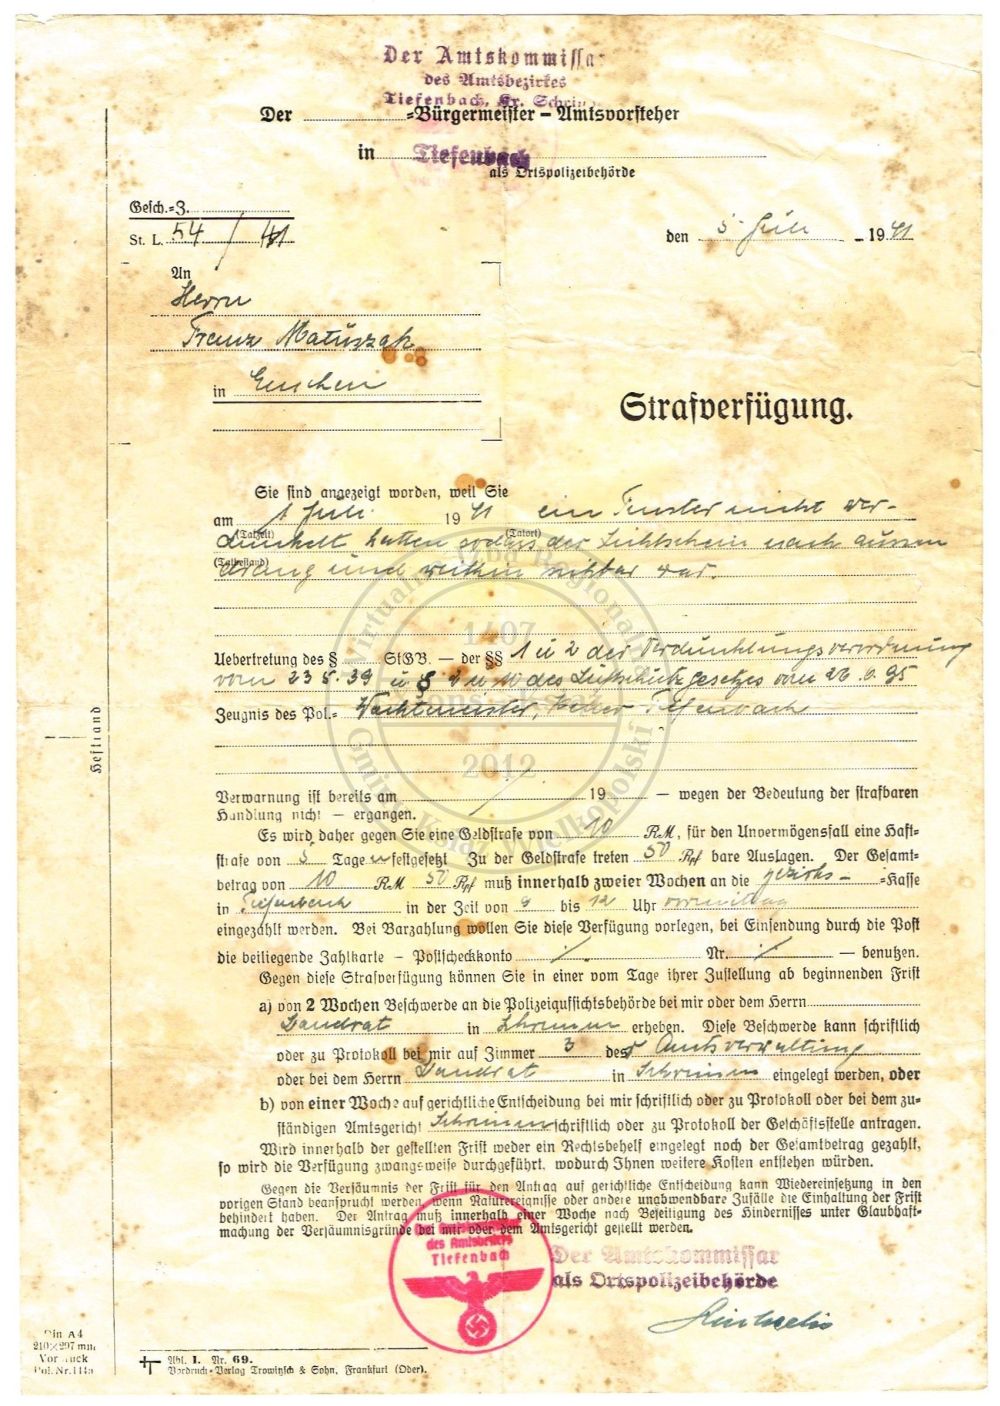 Der Amtskommissar
des Amtsbezirkes
Tiefenbach, Kr. Schrimm
Der =Bürgermeister – Amtsvorsteher
in Tiefenbach
als Ortspolizeibehörde
Gesch.=Z.
St. L. 54 / 41
den 5 Juli 1941
An
Herrn
Franz Matuszak
in Emchen
Strafverfügung.
Sie sind angezeigt worden, weil Sie
am 1 Juli 1941 ein Fenster nicht ver-
(Tatzeit) (Tatort)
dunkelt hatten sodass der Lichtschein nach aussen
(Tatbestand)
drang und weithin sichtbar war.
Uebertretung des § StGB. — der §§ 1 u 2 der Verdunklungsverordnung
vom 23 5. 39 u § des Luftschutzgesetzes vom 26. 6. 35
Zeugnis des Pol.= Wachtmeister, Tiefenbach
Verwarnung ist bereits am 19 — wegen der Bedeutung der strafbaren
Handlung nicht — ergangen.
Es wird daher gegen Sie eine Geldstrafe von 10 RM, für den Unvermögensfall eine Haft=
strafe von Tagen festgesetzt Zu der Geldstrafe treten 50 Rpf bare Auslagen. Der Gesamt=
betrag von 10 RM 50 Rpf muß innerhalb zweier Wochen an die Bezirks- =Kasse
in Tiefenbach in der Zeit von 9 bis 12 Uhr vormittag
eingezahlt werden. Bei Barzahlung wollen Sie diese Verfügung vorlegen, bei Einsendung durch die Post
die beiliegende Zahlkarte – Postscheckkonto ./. Nr. ./. — benutzen.
Gegen diese Strafverfügung können Sie in einer vom Tage ihrer Zustellung ab beginnenden Frist
a) von 2 Wochen Beschwerde an die Polizeiaufsichtsbehörde bei mir oder dem Herrn
Landrat in Schrimm erheben. Diese Beschwerde kann schriftlich
oder zu Protokoll bei mir auf Zimmer 3 der Amtsverwaltung
oder bei dem Herrn Landrat in Schrimm eingelegt werden, oder
b) von einer Woche auf gerichtliche Entscheidung bei mir schriftlich oder zu Protokoll oder bei dem zu=
ständigen Amtsgericht Schrimm schriftlich oder zu Protokoll der Geschäftsstelle antragen.
Wird innerhalb der gestellten Frist weder ein Rechtsbehelf eingelegt noch der Gesamtbetrag gezahlt,
so wird die Verfügung zwangsweise durchgeführt, wodurch Ihnen weitere Kosten entstehen würden.
Gegen die Versäumnis der Frist für den Antrag auf gerichtliche Entscheidung kann Wiedereinsetzung in den
vorigen Stand beansprucht werden, wenn Naturereignisse oder andere unabwendbare Zufälle die Einhaltung der Frist
behindert haben. Der Antrag muß innerhalb einer Woche nach Beseitigung des Hindernisses unter Glaubhaft=
machung der Versäumnisgründe bei mir oder dem Amtsgericht gestellt werden.
Der Amtskommissar
des Amtsbezirks
Tiefenbach
Der Amtskommissar
als Ortspolizeibehörde
Heftrand
Din A4
210×297 mm
Vordruck
Pol. Nr. 114a
Abt. I. Nr. 69.
Vordruck=Verlag Trowitzsch & Sohn, Frankfurt (Oder).
Wirtualna Izba Regionalna
1407
Książ
2012
Gmina Książ Wielkopolski